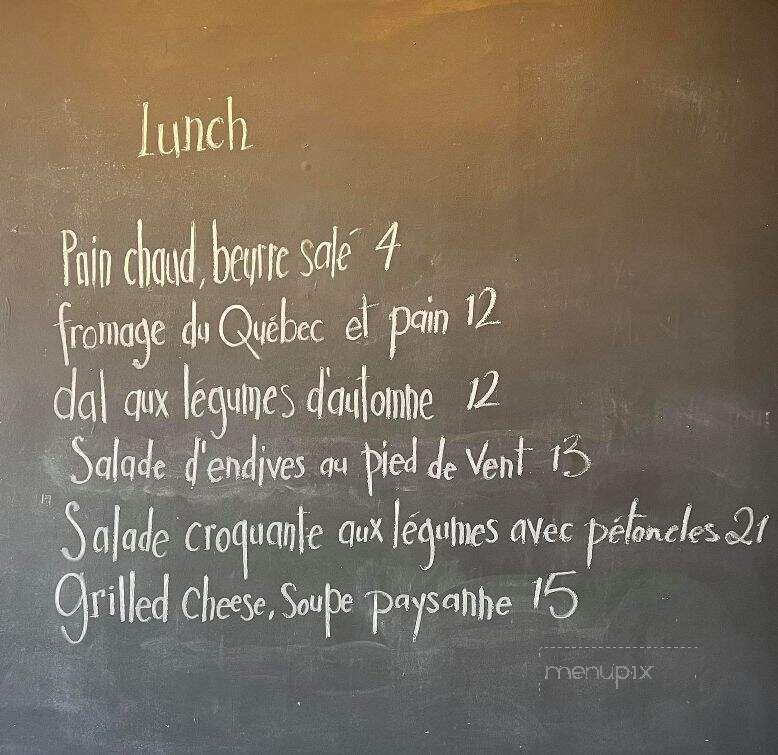 Lunch
Pain chaud, beurre salé 4
fromage du Québec et pain 12
dal aux légumes d'automne 12
Salade d'endives au pied de Vent 13
Salade croquante aux légumes avec pétoncles 21
Grilled cheese, Soupe paysanne 15
menupix